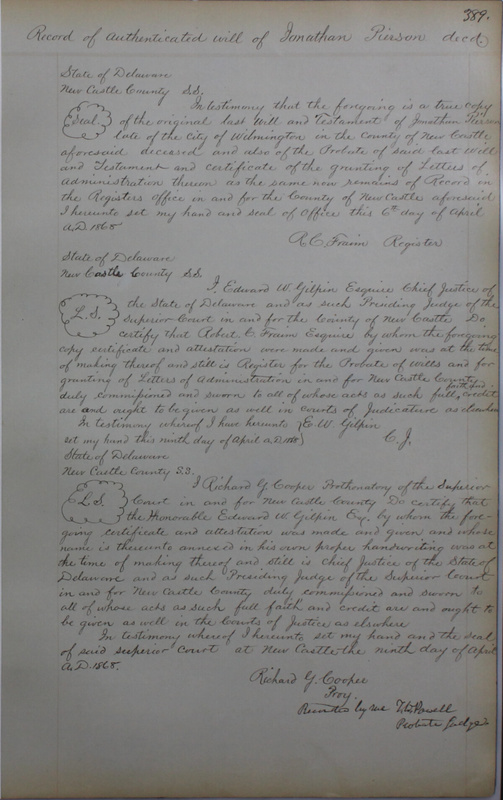 389.
Record of authenticated will of Jonathan Pierson decd
State of Delaware
New Castle County S.S.
In testimony that the foregoing is a true copy
Seal of the original last Will and Testament of Jonathan Pierson
late of the City of Wilmington in the County of New Castle
aforesaid deceased and also of the Probate of said last Will
and Testament and certificate of the granting of Letters of
Administration thereon as the same now remains of Record in
the Registers office in and for the County of New Castle aforesaid
I hereunto set my hand and seal of Office this 6th day of April
A.D. 1868
R. C. Fraim Register
State of Delaware
New Castle County S.S
I, Edward W. Gilpin Esquire Chief Justice of
L.S. the State of Delaware and as such Presiding Judge of the
Superior Court in and for the County of New Castle Do
certify that Robert. C. Fraim Esquire by whom the foregoing
copy certificate and attestation were made and given was at the time
of making thereof and still is Register for the Probate of Wills and for
granting of Letters of Administration in and for New Castle County
duly commissioned and sworn to all of whose acts as such full faith and credit
are and ought to be given as well in courts of Judicature as elsewhere
In testimony whereof I have hereunto } E. W. Gilpin
set my hand this ninth day of April A.D. 1868 } C. J.
State of Delaware
New Castle County S.S.
I Richard G. Cooper Prothonotary of the Superior
L.S Court in and for New Castle County Do certify that
the Honorable Edward W. Gilpin Esq. by whom the fore-
going certificate and attestation was made and given and whose
name is thereunto annexed in his own proper handwriting was at
the time of making thereof and still is Chief Justice of the State of
Delaware and as such Presiding Judge of the Superior Court
in and for New Castle County duly commissioned and sworn to
all of whose acts as such full faith and credit are and ought to
be given as well in the Courts of Justice as elswhere
In testimony whereof I hereunto set my hand and the seal
of said superior court at New Castle the ninth day of April
A.D. 1868.
Richard G. Cooper
Proy.
Recorded by me Powell
Probate Judge